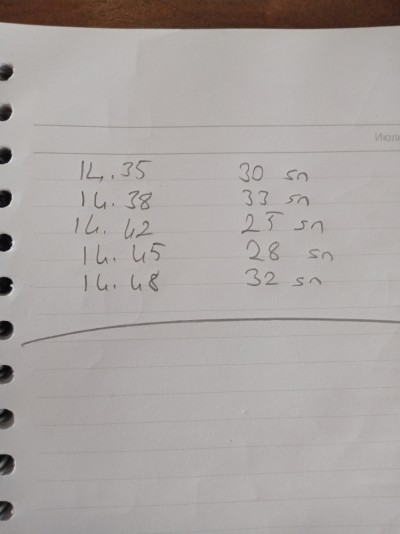 Июл
14.35 30 sn
14.38 33 sn
14.42 25 sn
14.45 28 sn
14.48 32 sn